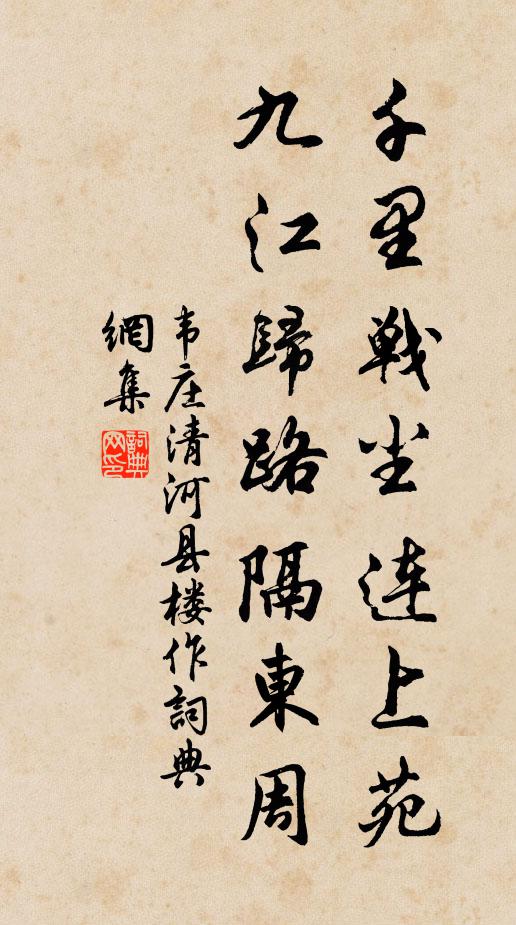 千里戦尘连上苑
九江歸路隔東周
韦庄清河县楼作詞典
網集
詞典網印